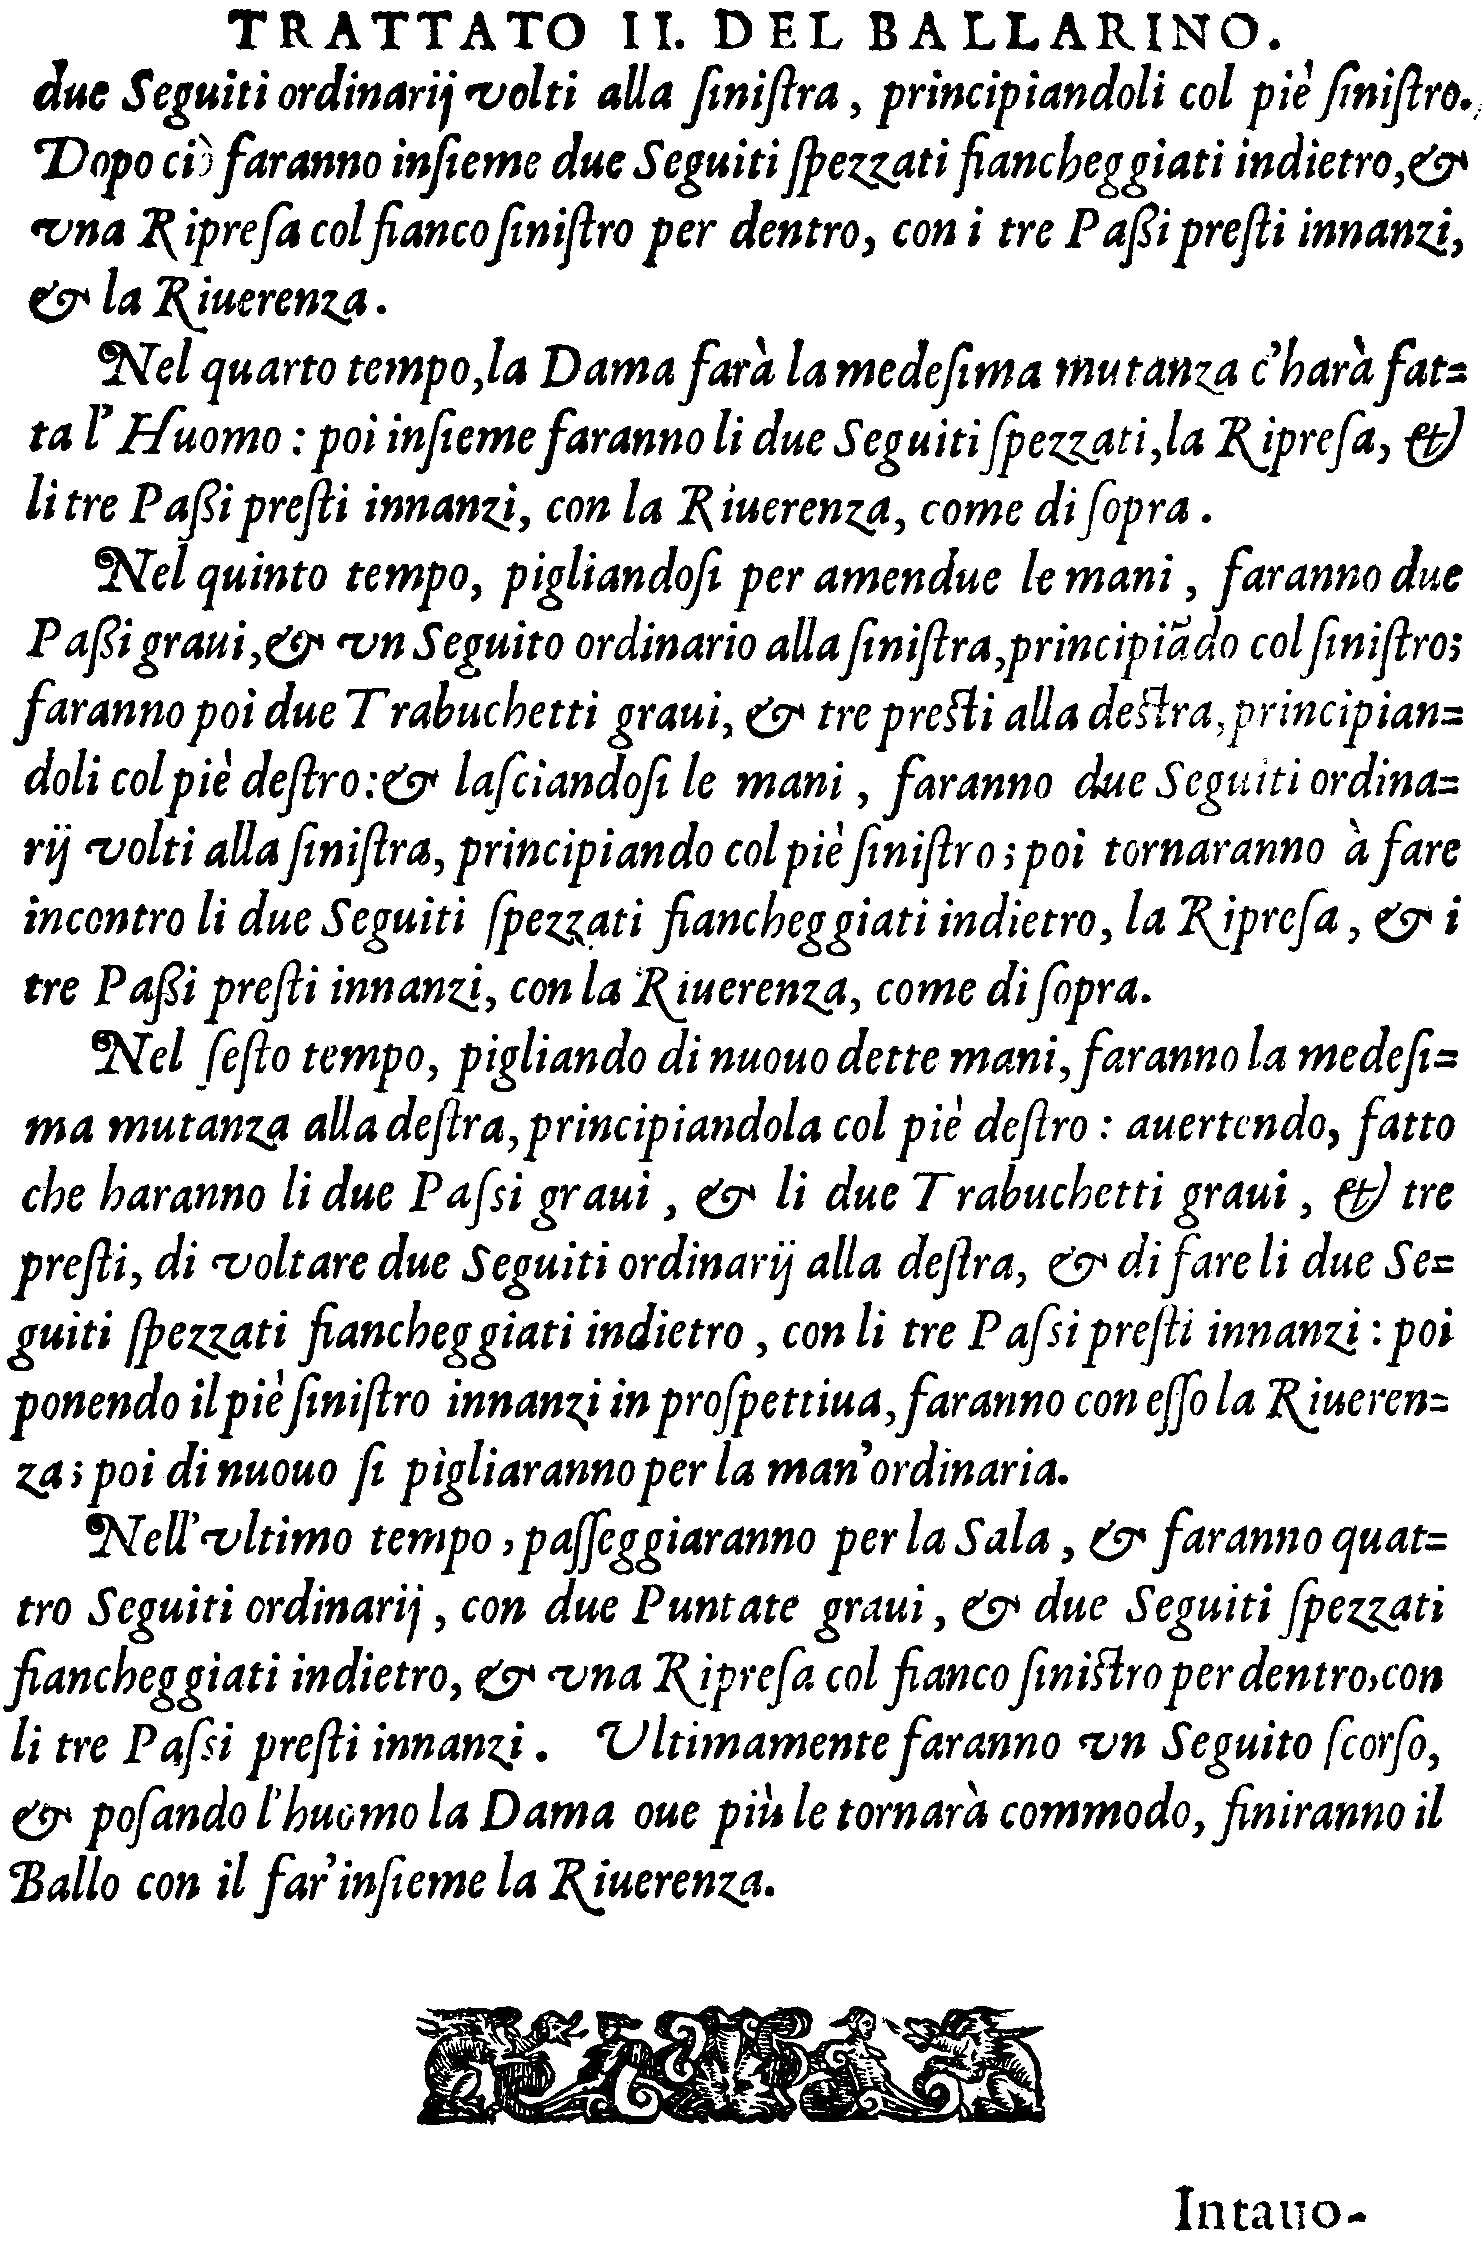 TRATTATO II. DEL BALLARINO.
due Seguiti ordinarij volti alla ſiniſtra, principiandoli col piè ſiniſtro.
Dopo ciò faranno inſieme due Seguiti ſpezzati fiancheggiati indietro, &
vna Ripreſa col fianco ſiniſtro per dentro, con i tre Paßi preſti innanzi,
& la Riuerenza.
Nel quarto tempo, la Dama farà la medeſima mutanza c'harà fat=
ta l'Huomo: poi inſieme faranno li due Seguiti ſpezzati, la Ripreſa, &
li tre Paßi preſti innanzi, con la Riuerenza, come di ſopra.
Nel quinto tempo, pigliandoſi per amendue le mani, faranno due
Paßi graui, & vn Seguito ordinario alla ſiniſtra, principiãdo col ſiniſtro;
faranno poi due Trabuchetti graui, & tre preſti alla deſtra, principian=
doli col piè deſtro: & laſciandoſi le mani, faranno due Seguiti ordina=
rij volti alla ſiniſtra, principiando col piè ſiniſtro; poi tornaranno à fare
incontro li due Seguiti ſpezzati fiancheggiati indietro, la Ripreſa, & i
tre Paßi preſti innanzi, con la Riuerenza, come di ſopra.
Nel ſeſto tempo, pigliando di nuouo dette mani, faranno la medeſi=
ma mutanza alla deſtra, principiandola col piè deſtro: auertendo, fatto
che haranno li due Paſsi graui, & li due Trabuchetti graui, & tre
preſti, di voltare due Seguiti ordinarij alla deſtra, & di fare li due Se=
guiti ſpezzati fiancheggiati indietro, con li tre Paſsi preſti innanzi: poi
ponendo il piè ſiniſtro innanzi in proſpettiua, faranno con eſſo la Riueren=
za; poi di nuouo ſi pìgliaranno per la man'ordinaria.
Nell'vltimo tempo, paſſeggiaranno per la Sala, & faranno quat=
tro Seguiti ordinarij, con due Puntate graui, & due Seguiti ſpezzati
fiancheggiati indietro, & vna Ripreſa col fianco ſiniſtro per dentro, con
li tre Paſsi preſti innanzi. Ultimamente faranno vn Seguito ſcorſo,
& poſando l'huomo la Dama oue più le tornarà commodo, finiranno il
Ballo con il far'inſieme la Riuerenza.
Intauo-